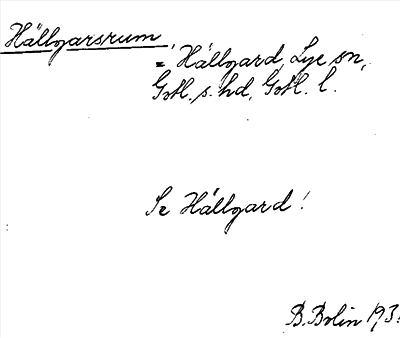 Hällgarsrum
= Hällgard, Lye sn,
Gotl. s. hd, Gotl. l.
Se Hällgard!
B. Bolin 193